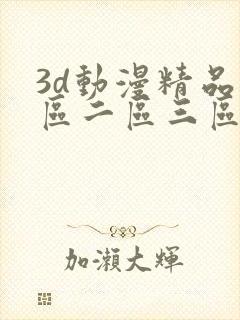 3d動漫精品
區二區三區
加瀨大輝